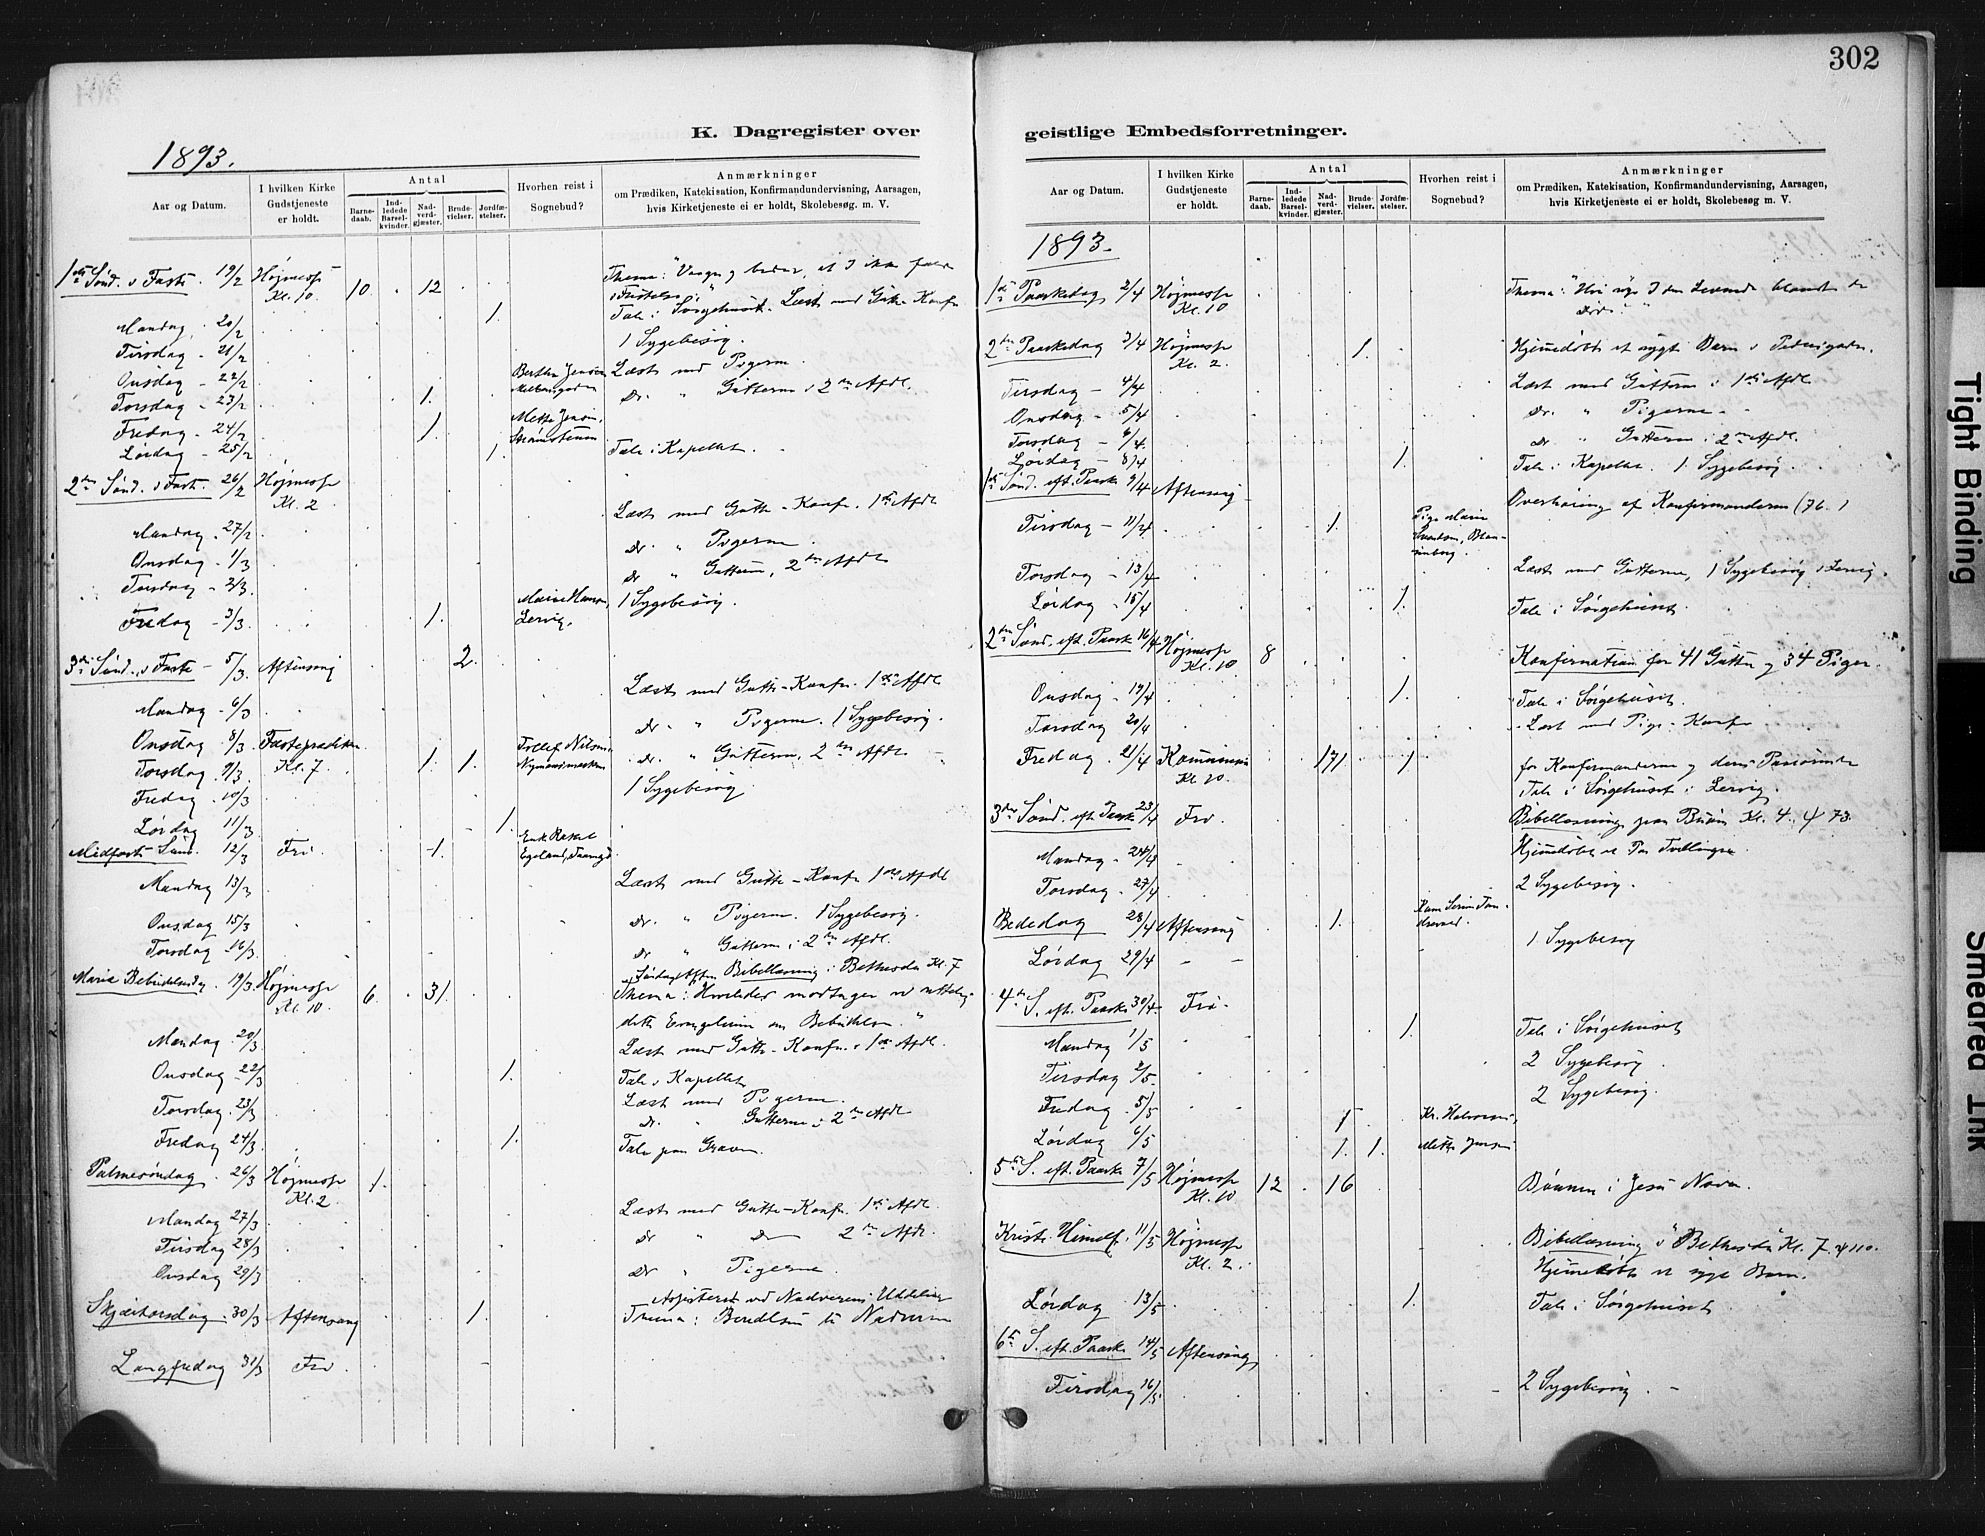 302
K. Dagregister over
geistlige Embedsforretninger.
1893.
Aar og Datum.
I hvilken Kirke Gudstjeneste er holdt.
Antal
Barnedaab.
Indledede Barselkvinder.
Nadverdgjæster.
Brudevielser.
Jordfæstelser.
Hvorhen reist i Sognebud?
Anmærkninger
om Prædiken, Katekisation, Konfirmandundervisning, Aarsagen,
hvis Kirketjeneste ei er holdt, Skolebesøg. m. V.
1ste Sönd. i Faste 19/2 Højmesse Kl. 10. 10 12 Thema: "Vaager og beder, at I ikke falde i Fristelse."
Mandag 20/2 1. Tale i Sørgehuset. Læst med Gutte-Konf.
Tirsdag - 21/2 1 Sygebesøg.
Onsdag - 22/2 Læst med Pigerne.
Torsdag - 23/2 1. Berthe Jensen Do. " Gutterne i 2den Afdl.
Fredag - 24/2 1. Mette Jensen,
Lørdag - 25/2 1. Tale i Kapellet.
2den Sönd. i Fast. 26/2 Højmesse Kl. 2
Mandag. 27/2 Læst med Gutte-Konf. 1ste Afdl
Onsdag - 1/3 Do. " Pigerne.
Torsdag - 2/3. Do " Gutterne, 2den Afdl
Fredag - 3/3. 1. Marie Hansen, Lervig. 1 Sygebesøg.
3die Sönd. i Faste - 5/3. Aftensang 2.
Mandag - 6/3 Læst med Gutte-Konfr. 1ste Afdl
Onsdag 8/3 Fasteprædiken Kl. 7 Do. " Pigerne. 1 Sygebesøg.
Torsdag. 9/3. 1. 1. Tollef Nilsen Do. " Gutterne, 2den Afdl
Fredag. 10/3 1 Sygebesøg.
Lørdag 11/3 1.
Midfaste Sönd. 12/3 Fri 1. Enke Rakel Egeland,
Mandag 13/3 Læst med Gutte-Konfr. 1ste Afdl
Onsdag 15/3 Do. " Pigerne. 1 Sygebesøg.
Torsdag - 16/3. Do " Gutterne i 2den Afdl.
Lördag Aften Bibellæsning i Bethesda Kl. 7
Maria Bebudelsesdag. 19/3. Højmesse Kl. 10. 6. 31. Thema: Hvorledes modtager vi
dette Evangelium om Bebudelsen."
Mandag. 20/3 Læst med Gutte-Konfr. 1ste Afdl.
Onsdag 22/3 1. Tale i Kapellet
Torsdag. 23/3 Læst med Pigerne.
Do. Gutterne i 2den Afdl
Fredag 24/3 1. Tale paa Graven.
Palmesöndag. 26/3 Højmesse Kl. 2 1.
Mandag 27/3 Læst med Gutte-Konfr. 1ste Afdl.
Tirsdag 28/3 Do " Do 2den Afdl.
Onsdag 29/3 Do " Pigerne.
Skjærtorsdag. 30/3 Aftensang 1. Assisteret ved Nadverens Uddeling
Thema: til Nadveren
Langfredag 31/3 Fri.
Aar og Datum.
I hvilken Kirke Gudstjeneste er holdt.
Antal
Barnedaab.
Indledede Barselkvinder.
Nadverdgjæster.
Brudevielser.
Jordfæstelser.
Hvorhen reist i Sognebud?
Anmærkninger
om Prædiken, Katekisation, Konfirmandundervisning, Aarsagen,
hvis Kirketjeneste ei er holdt, Skolebesøg m. V.
1893.
1ste Paaskedag 2/4 Højmesse Kl. 10 Thema: "Hvi søge I den Levende blandt de døde."
2den Paaskedag 3/4 Højmesse Kl. 2. 1. Hjemmedöbt et sygt Barn i
Tirsdag - 4/4 Læst med Gutterne i 1ste Afdl
Onsdag - 5/4 Do. " Pigerne -
Torsdag - 6/4. Do " Gutterne i 2den Afdl.
Lørdag - 8/4 1. Tale i Kapellet. 1 Sygebesøg.
1ste Sönd. eft. Paaske 9/4 Aftensang Overhøring af Konfirmanderne (76.)
Tirsdag - 11/4 1. Pige Marie
Torsdag - 13/4 Læst med Gutterne, 1 Sygebesøg i Lervig.
Lørdag - 15/4 1. Tale i Sørgehuset.
2den Sönd. eft. Paaske 16/4 Højmesse Kl. 10 8 Konfirmation for 41 Gutter og 34 Piger.
Onsdag - 19/4 1. Tale i Sørgehuset
Torsdag 20/4 Læst med Pige-Konfr
Fredag. 21/4 Kommunion Kl. 10. 171 1 for Konfirmanderne og deres Paarørende
Tale i Sørgehuset i Lervig.
3die Sönd. eft. Paaske 23/4 Fri. Bibellæsning paa Buøen Kl. 4. ψ 73.
Mandag - 24/4 Hjemmedöbt et Par Tvillinger.
Torsdag - 27/4 2 Sygebesøg.
Bededag 28/4 Aftensang 1.
Lørdag 29/4 - - 1 Sygebesøg
4de S. eft. Paaske 30/4 Fri.
Mandag 1/5 1. Tale i Sørgehuset
Tirsdag 2/5. 2 Sygebesøg.
Fredag. 5/5 1 Kr. Halvorsen, 2 Sygebesøg.
Lørdag 6/5 1. 1. Mette Jensen
5te S. eft. Paaske 7/5 Højmesse Kl. 10 12 16 Bønnen i Jesu Navn.
Kristi Himelf. 11/5 Højmesse Kl. 2. Bibellæsning i "Bethesda" Kl. 7. ψ 110.
Hjemmedöbt et sygt Barn.
Lørdag 13/5 1. Tale i Sørgehuset
6te S. eft. Paaske 14/5 Aftensang
Tirsdag 16/5 2 Sygebesøg. -
Tight Binding
Smeared Ink